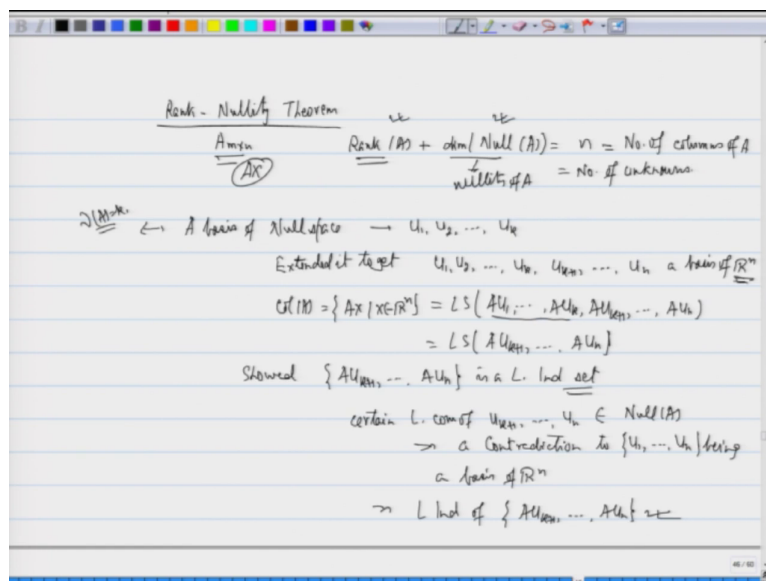 Rank - Nullity Theorem
A_{m×n} Rank (A) + dim( Null (A)) = n = No. of columns of A
AX nullity of A = No. of unknowns.
ν(A)=k. ← A basis of Null space → u₁, u₂, ..., u_k
Extended it to get u₁, u₂, ..., u_k, u_{k+1}, ..., u_n a basis of ℝⁿ
Col(A) = {AX | X∈ℝⁿ} = LS( Au₁, ..., Au_k, Au_{k+1}, ..., Au_n)
= LS{ Au_{k+1}, ..., Au_n}
Showed {Au_{k+1}, ..., Au_n} is a L. Ind set
certain L. com of u_{k+1}, ..., u_n ∈ Null(A)
⇒ a Contradiction to {u₁, ..., u_n} being
a basis of ℝⁿ
⇒ L Ind of { Au_{k+1}, ..., Au_n}
46 / 60